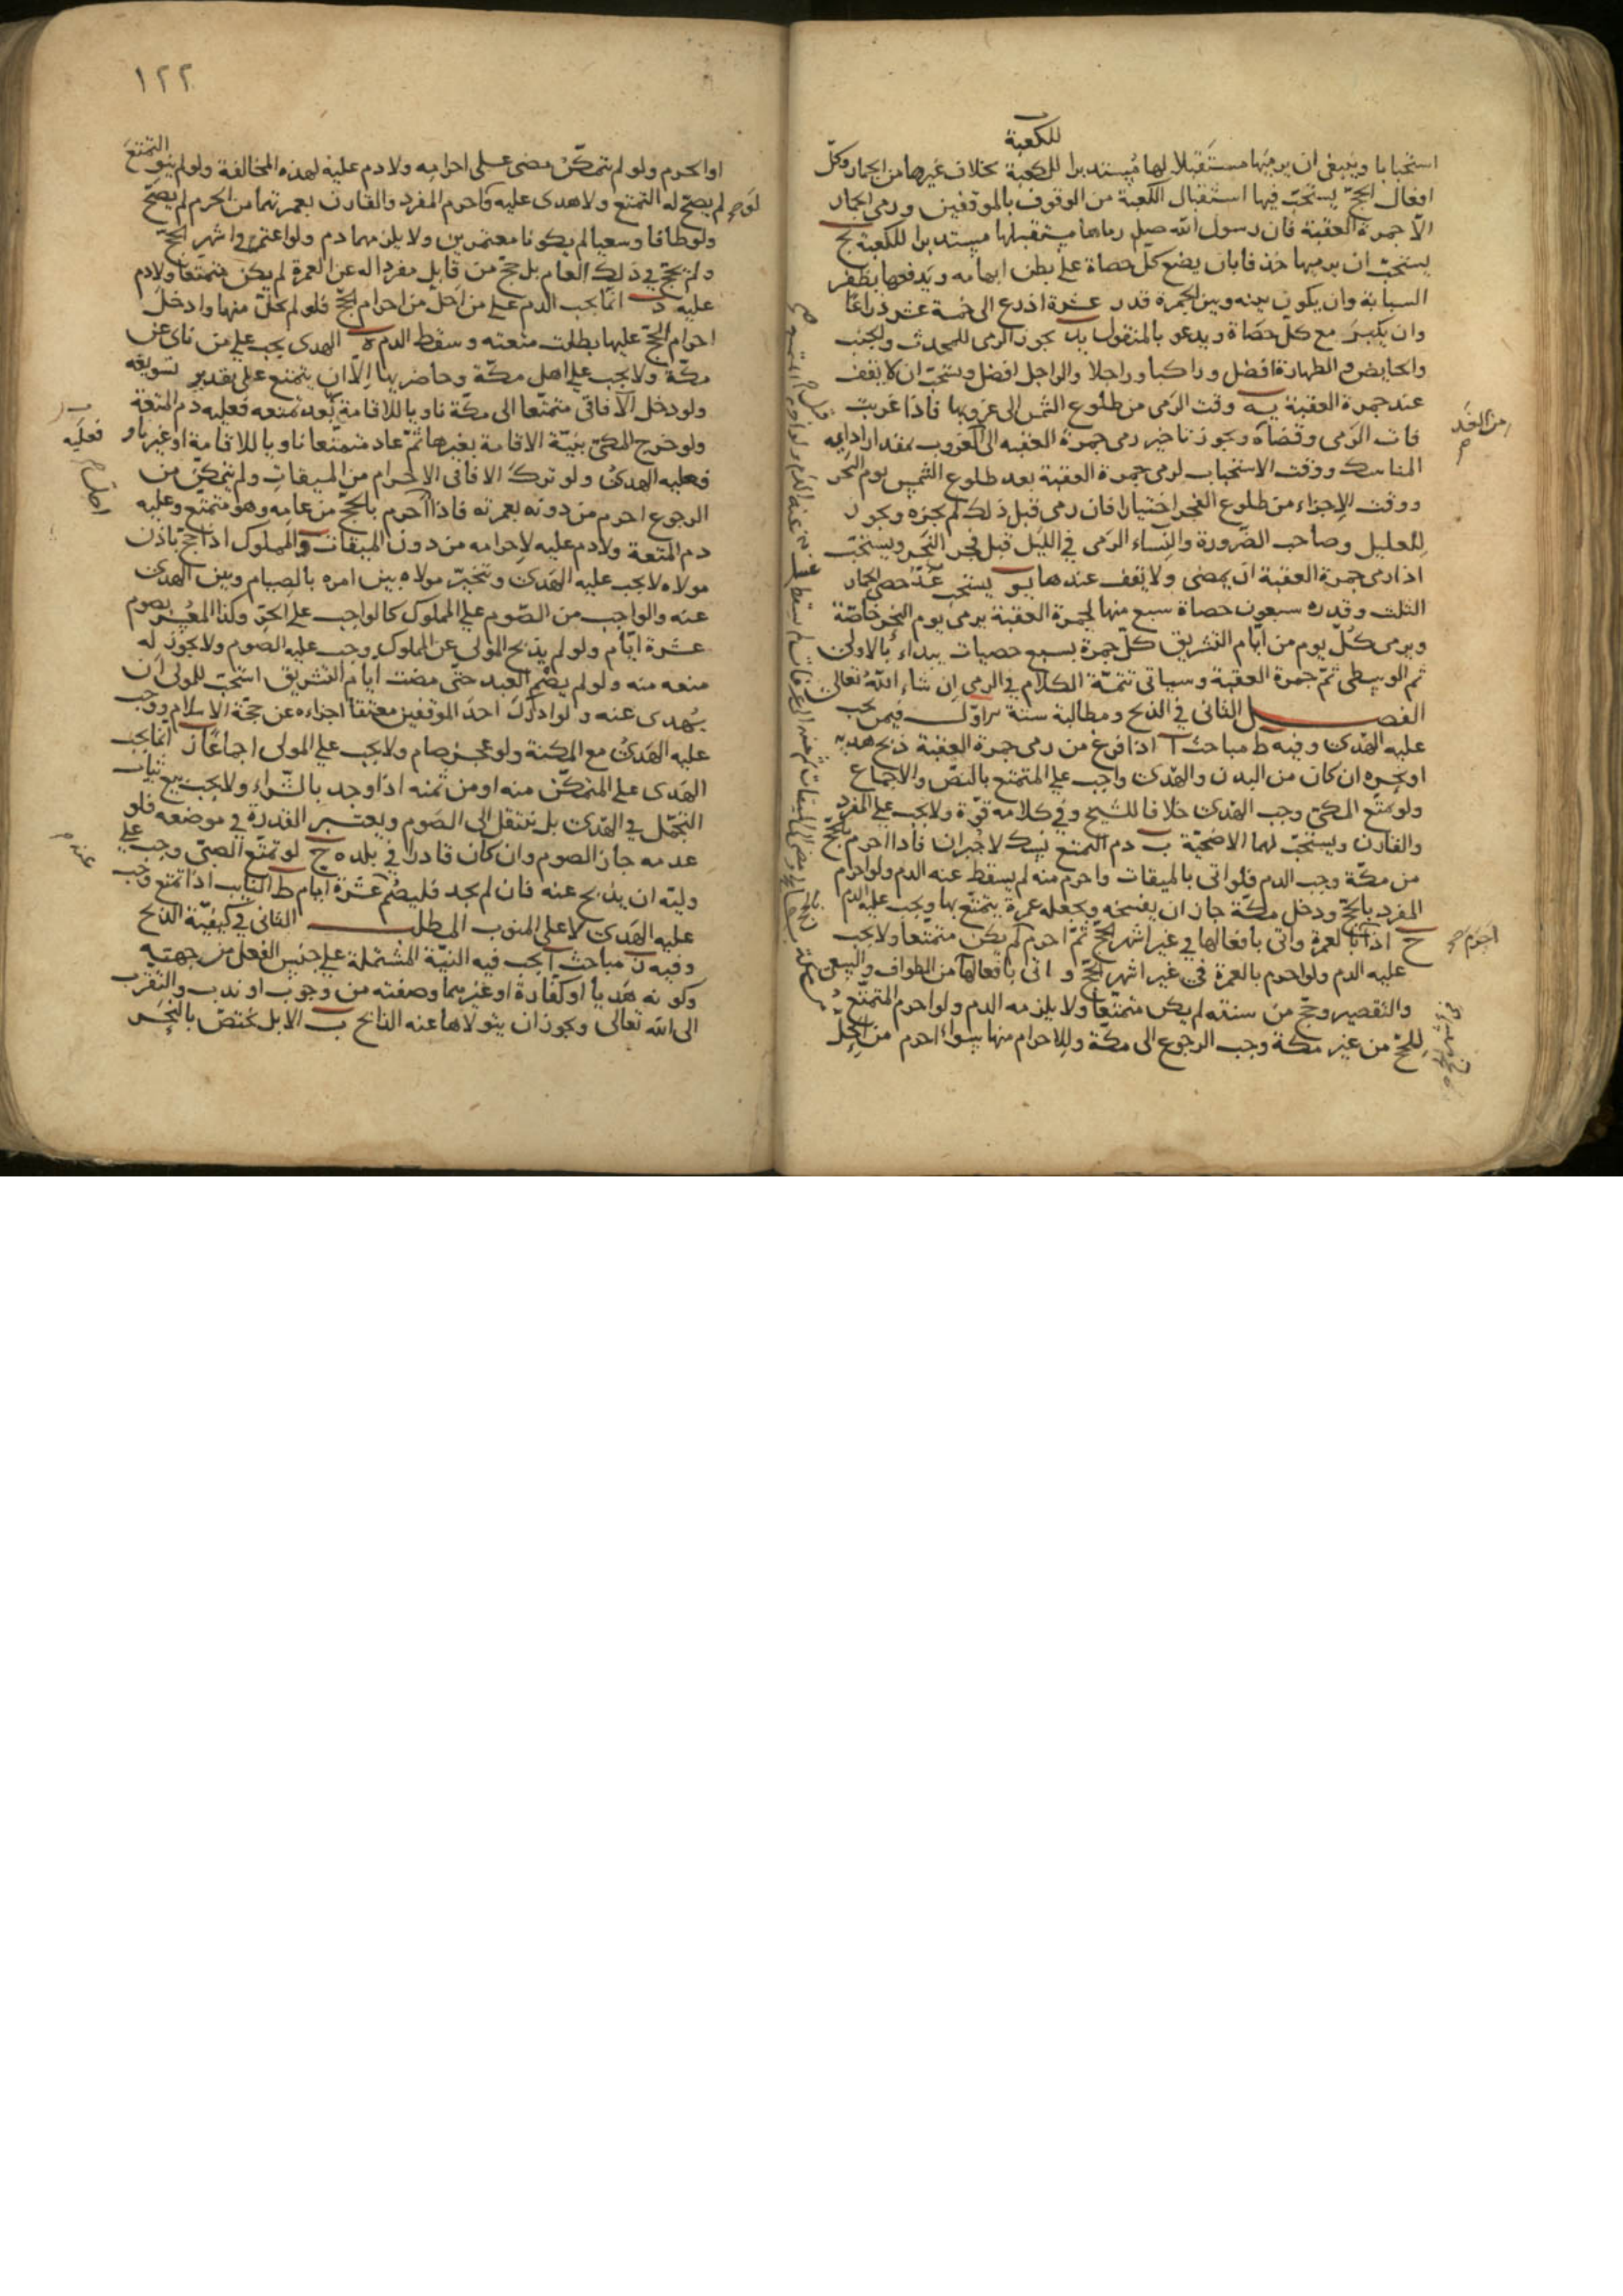 للكعبة
استحبابا وينبغى ان يرميها مستقبلا لها مستدبرا للكعبة بخلاف غيرها من الجمار وكل
افعال الحج يستحب فيها استقبال الكعبة من الوقوف بالموقفين ورمى الجمار
الا جمرة العقبة فان رسول الله صلم رماها مستقبلها مستدبرا للكعبة يج
يستحب ان يرميها خذفا بان يضع كل حصاة على بطن ابهامه ويدفعها بظفر
السبابة وان يكون بينه وبين الجمرة قدر عشرة اذرع الى خمسة عشر ذراعا
وان يكبر مع كل حصاة ويدعو بالمنقول يد يجوز الرمى للمحدث والجنب
والحايض والطهارة افضل وراكبا وراجلا والراجل افضل ويستحب ان لا يقف
عند جمرة العقبة يه وقت الرمى من طلوع الشمس الى غروبها فاذا غربت
من الغد
فات الرمى وقضاه ويجوز تاخير رمى جمرة العقبه الى الغروب بمقدار اداء
المناسك ووقت الاستحباب لرمى جمرة العقبة بعد طلوع الشمس يوم النحر
ووقت الاجزاء من طلوع الفجر اختيارا فان رمى قبل ذلك لم يجزه ويجوز
للعليل وصاحب الضرورة والنساء الرمى في الليل قبل فجر النحر ويستحب
اذا رمى جمرة العقبة ان يمضى ولا يقف عندها يو يستحب عد حصى الجمار
الثلث وقدره سبعون حصاة سبع منها لجمرة العقبة يرمى يوم النحر خاصة
ويرمى كل يوم من ايام التشريق كل جمرة بسبع حصيات يبداء بالاولى
ثم الوسطى ثم جمرة العقبة وسياتى تتمة الكلام في الرمى ان شاء الله تعالى
الفصل الثانى في الذبح ومطالبه ستة الاول فيمن يجب
عليه الهدى وفيه ط مباحث ا اذا فرغ من رمى جمرة العقبة ذبح هديه
او نحره ان كان من البدن والهدى واجب على المتمتع بالنص والاجماع
ولو تمتع المكى وجب الهدى خلافا للشيخ وفي كلامه قوة ولا يجب على المفرد
والقارن ويستحب لهما الاضحية ب دم التمتع نسك لا جبران فاذا احرم بالحج
من مكة وجب الدم فلو اتى بالميقات واحرم منه لم يسقط عنه الدم ولو احرم
المفرد بالحج ودخل مكة جاز ان يفسخه ويجعله عمرة يتمتع بها ويجب عليه الدم
احرم صح
ج اذا بالعمرة واتى بافعالها في غير اشهر الحج ثم احرم لم يكن متمتعا ولا يجب
عليه الدم ولو احرم بالعمرة في غير اشهر الحج واتى بافعالها من الطواف والسعى
والتقصير وحج من سنته لم يكن متمتعا ولا يلزمه الدم ولو احرم المتمتع
للحج من غير مكة وجب الرجوع الى مكة وللاحرام منها سواء احرم من الحل
١٢٢
او الحرم ولو لم يتمكن مضى على احرامه ولا دم عليه لهذه المخالفة ولو لم ينو التمتع
لم يصح له التمتع ولا هدى عليه كاحرم المفرد والقارن بعمرتهما من الحرم لم يصح
ولو طافا وسعيا لم يكونا معتمرين ولا يلزمهما دم ولو اعتمر في اشهر الحج
ولم يحج في ذلك العام بل حج من قابل مفردا له عن العمرة لم يكن متمتعا ولا دم
عليه د انما يجب الدم على من احل من احرام الحج فلو لم يحل منها وادخل
احرام الحج عليها بطلت متعته وسقط الدم ه الهدى يجب على من نأى عن
مكة ولا يجب على اهل مكة وحاضريها الا ان يتمتع على تقدير تسويغه
ولو دخل الآفاقى متمتعا الى مكة ناويا للاقامة بها بعد تمتعه فعليه دم المتعة
فعليه
ولو خرج المكى بنية الاقامة بغيرها ثم عاد متمتعا ناويا للاقامة او غير ناو
فعليه الهدى ولو ترك الافاقى الاحرام من الميقات ولم يتمكن من
الرجوع احرم من دونه بعمرته فاذا احرم بالحج من عامه وهو متمتع وعليه
دم المتعة ولا دم عليه لاحرامه من دون الميقات و المملوك اذا حج باذن
مولاه لا يجب عليه الهدى ويتخير مولاه بين امره بالصيام وبين الهدى
عنه والواجب من الصوم على المملوك كالواجب على الحر وكذا المعسر يصوم
عشرة ايام ولو لم يذبح المولى عن المملوك وجب عليه الصوم ولا يجوز له
منعه منه ولو لم يصم العبد حتى مضت ايام التشريق استحب للمولى ان
يهدى عنه ولو ادرك احد الموقفين معتقا اجزاءه عن حجة الاسلام ووجب
عليه الهدى مع المكنة ولو عجز صام ولا يجب على المولى اجماعا ز انما يجب
الهدى على المتمكن منه او من ثمنه اذا وجد بالشراء ولا يجب بيع ثياب
التجمل في الهدى بل ينتقل الى الصوم ويعتبر القدرة في موضعه فلو
عدمه جاز الصوم وان كان قادرا في بلده ح لو تمتع الصبى وجب على
عنه
وليه ان يذبح عنه فان لم يجد فليصم عشرة ايام ط النايب اذا تمتع وجب
عليه الهدى لا على المنوب المطلب الثانى في كيفية الذبح
وفيه ز مباحث ا يجب فيه النية المشتملة على جنس الفعل من جهته
وكونه هديا او كفارة او غيرهما وصفته من وجوب او ندب والتقرب
الى الله تعالى ويجوز ان يتولاها عنه الذابح ب الابل يختص بالنحر